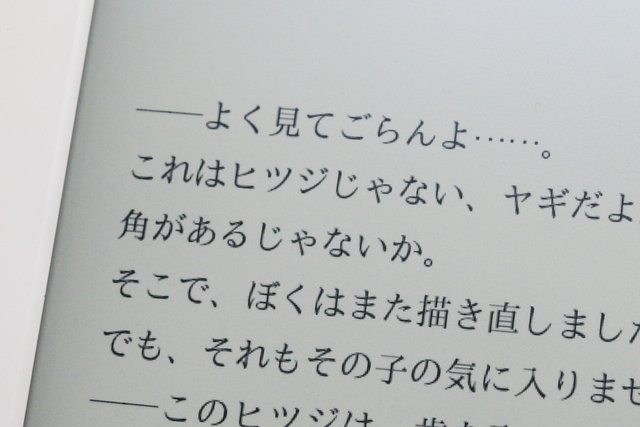 ――よく見てごらんよ……。
これはヒツジじゃない、ヤギだよ
角があるじゃないか。
そこで、ぼくはまた描き直しました
でも、それもその子の気に入りませ
――このヒツジは、